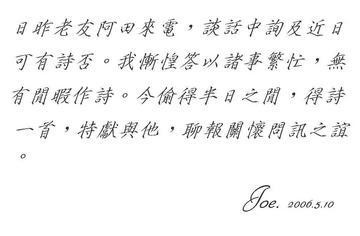 日昨老友阿田來電，談話中詢及近日
可有詩否。我慚惶答以諸事繁忙，無
有閒暇作詩。今偷得半日之閒，得詩
一首，特獻與他，聊報關懷問訊之誼
。
Joe. 2006.5.10